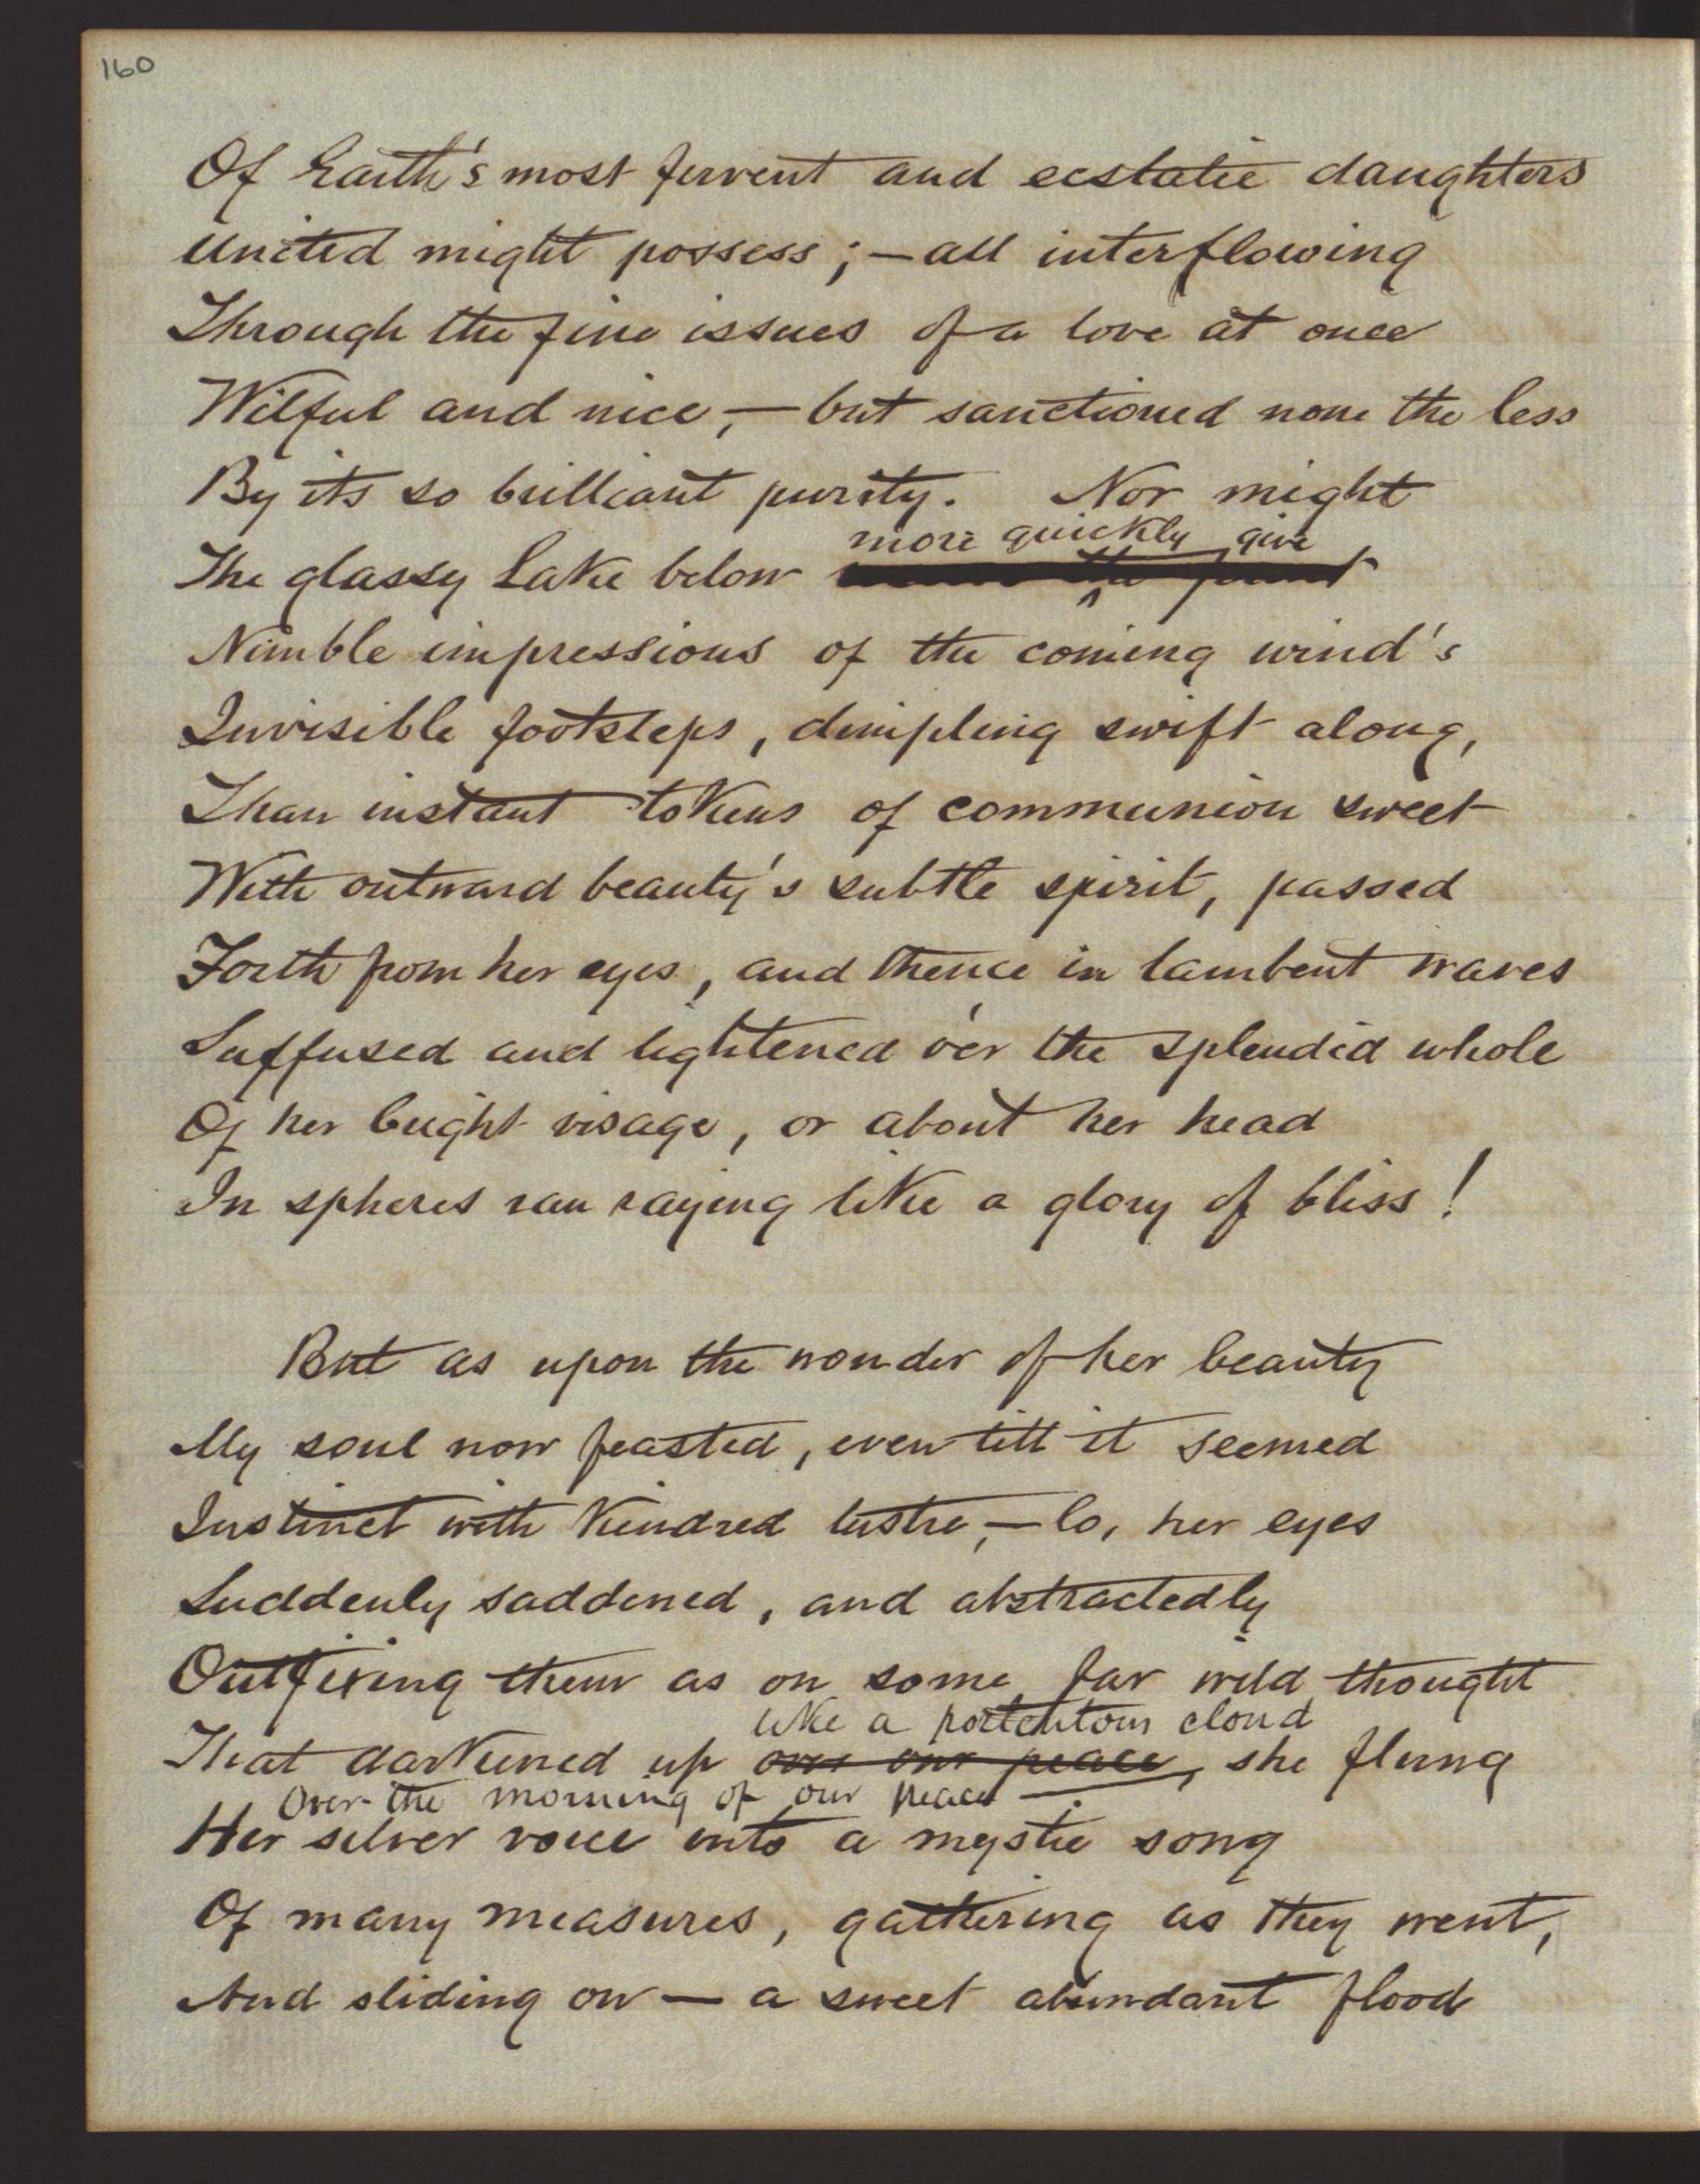 160
Of Earth's most fervent and ecstatic daughters
United might possess; — all interflowing
Through the fine issues of a love at once
Wilful and nice, — but sanctioned none the less
By its so brilliant purity. Nor might
more quickly give
The glassy Lake below
Nimble impressions of the coming wind's
Invisible footsteps, dimpling swift along,
Than instant tokens of communion sweet
With outward beauty's subtle spirit, passed
Forth from her eyes, and thence in lambent waves
Suffused and lightened o'er the splendid whole
Of her bright visage, or about her head
In spheres ran raying like a glory of bliss!
But as upon the wonder of her beauty
My soul now feasted, even till it seemed
Instinct with kindred lustre, — lo, her eyes
Suddenly saddened, and abstractedly
Outfixing them as on some far wild thought
like a portentous cloud
That darkened up over our peace, she flung
Over the morning of our peace —
Her silver voice into a mystic song
Of many measures, gathering as they went,
And sliding on — a sweet abundant flood